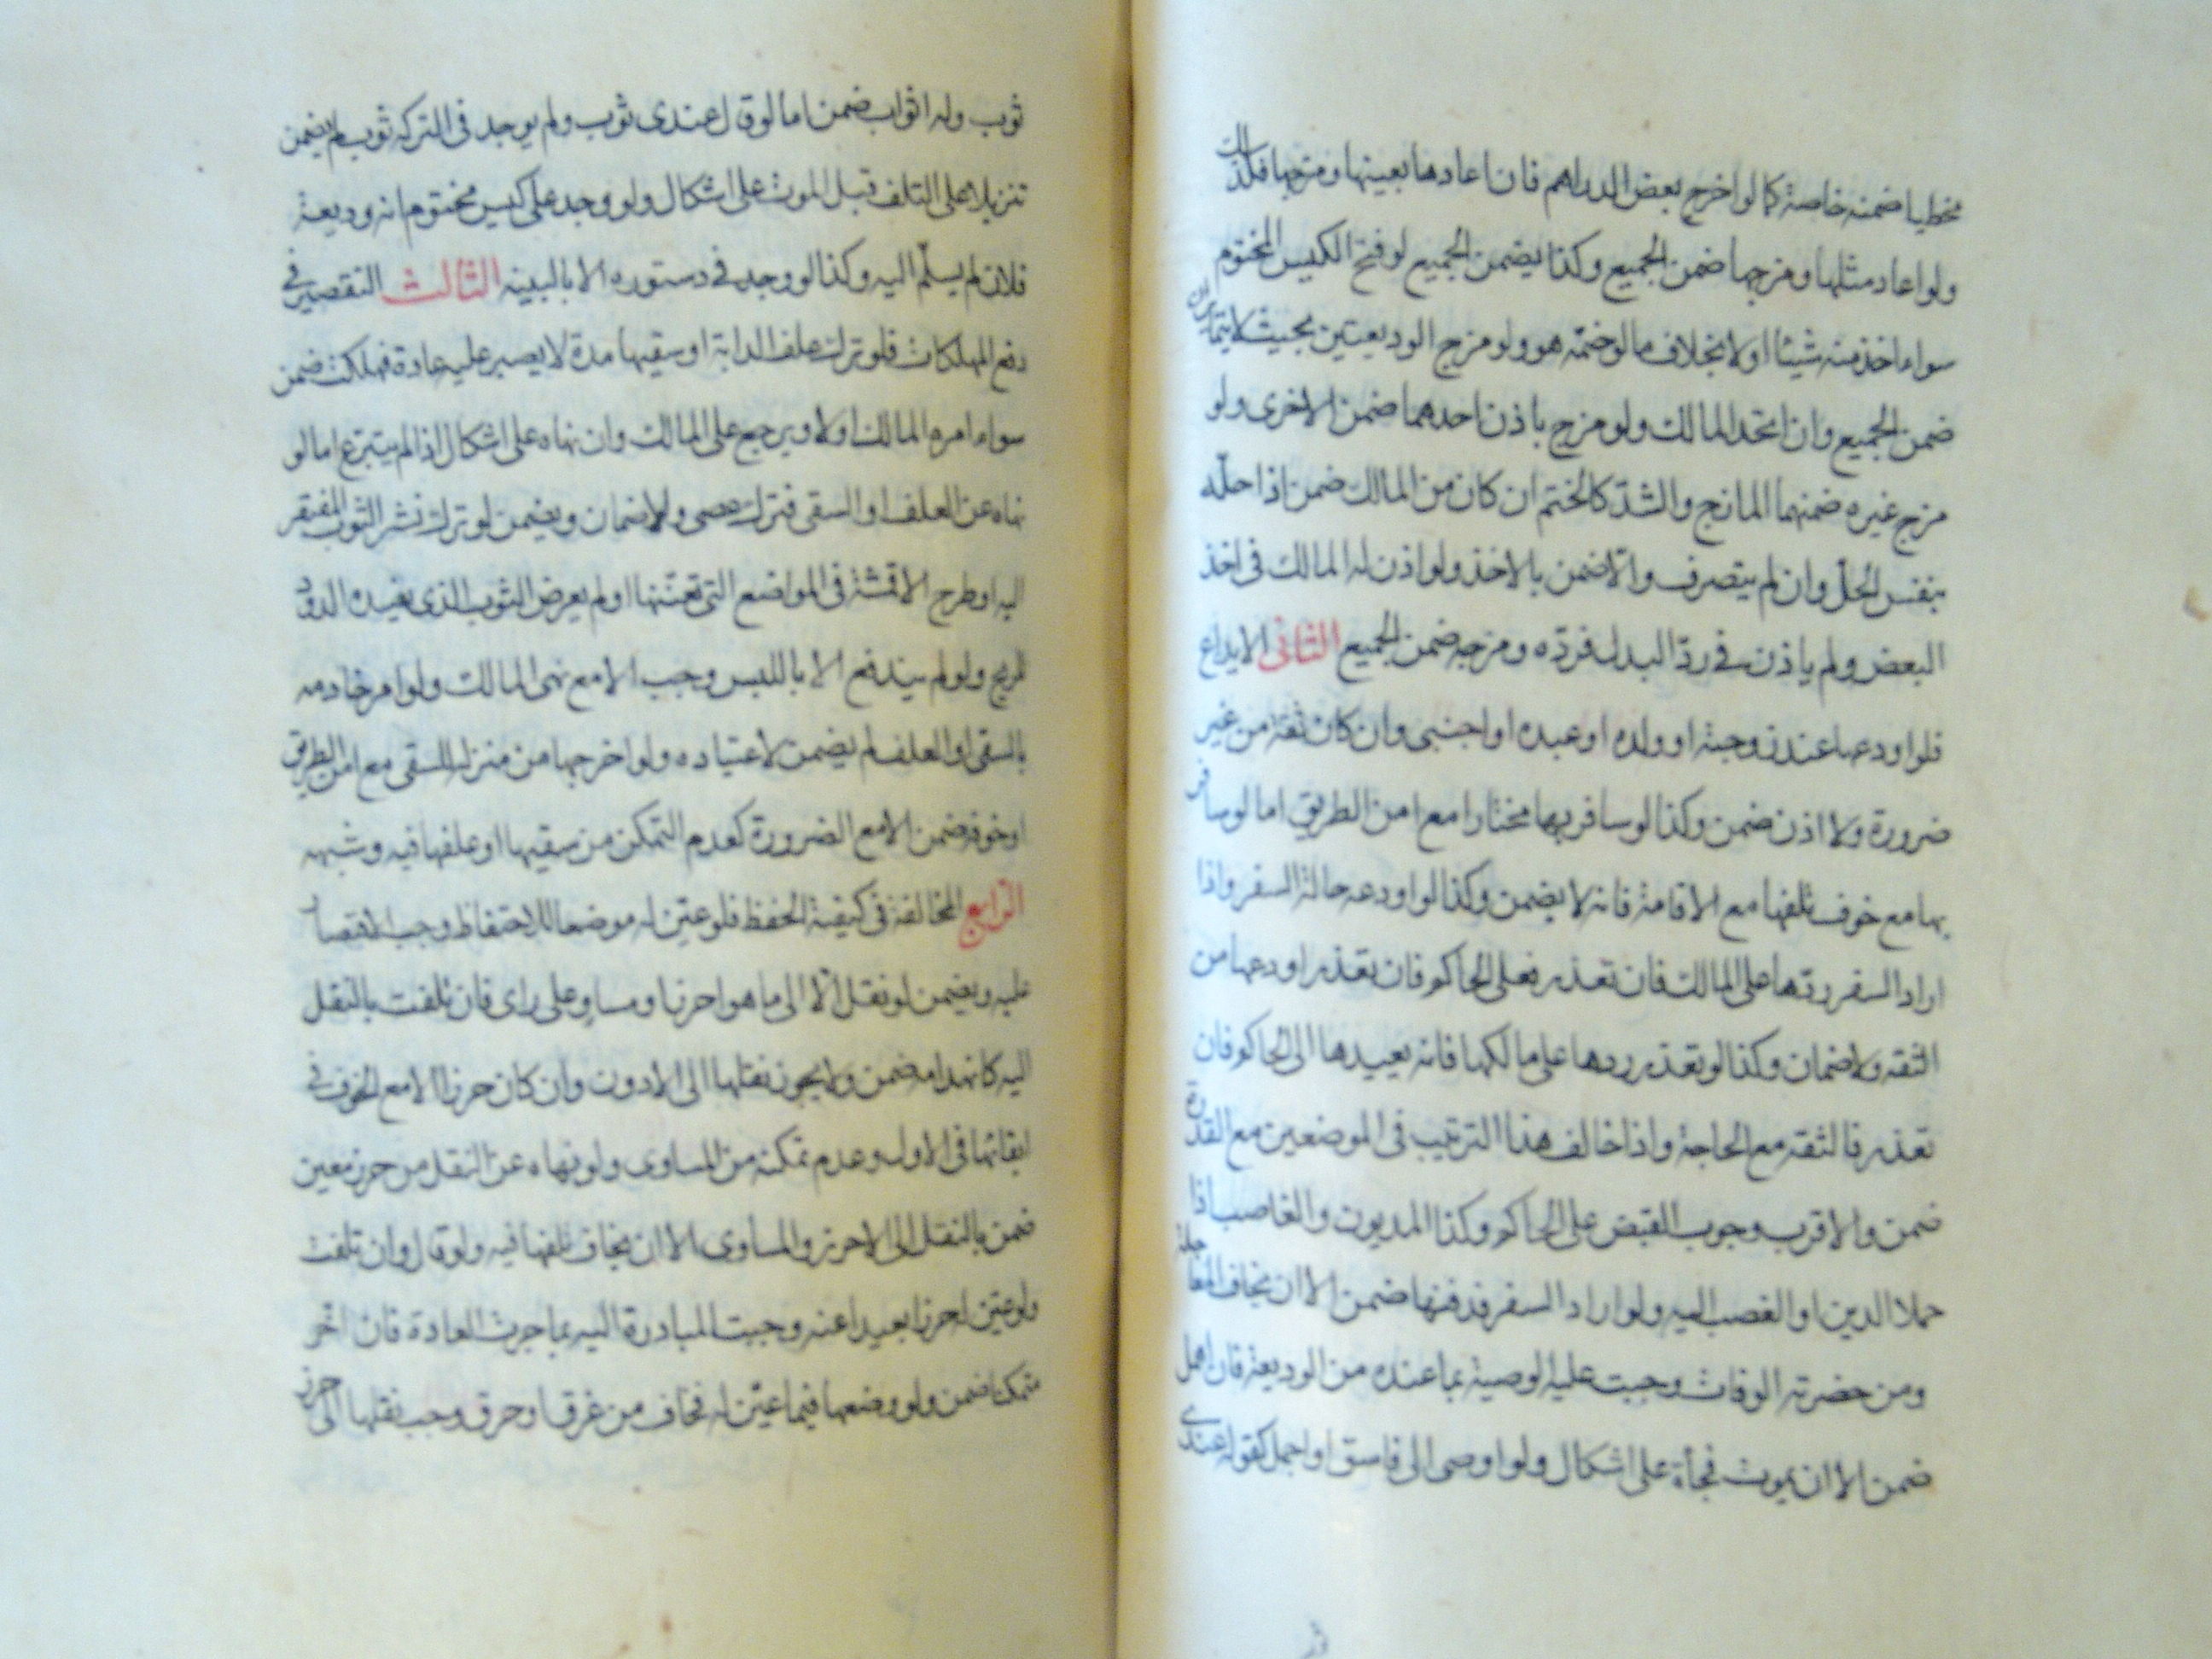 مخطيا ضمنه خاصة كما لو اخرج بعض الدراهم فان اعادها بعينها ومزجها فكذلك
ولو اعاد مثلها ومزجها ضمن الجميع وكذا يضمن الجميع لو فتح الكيس المختوم
سواء اخذ منه شيئا اولا بخلاف ما لو ختمه هو ولو مزج الوديعتين بحيث لا يتمايزان
ضمن الجميع وان اتحد المالك ولو مزج باذن احدهما ضمن الاخرى ولو
مزج غيره ضمنهما المازج والشدّ كالختم ان كان من المالك ضمن اذا حلّه
بنفس الحلّ وان لم يتصرف والّا ضمن بالاخذ ولو اذن له المالك فى اخذ
البعض ولم ياذن فى ردّ البدل فردّه ومزجه ضمن الجميع الثانى الايداع
فلو اودعها عند زوجته او ولده او عبده او اجنبى وان كان ثقة من غير
ضرورة ولا اذن ضمن وكذا لو سافر بها مختارا مع امن الطريق اما لو سافر
بها مع خوف تلفها مع الاقامة فانه لا يضمن وكذا لو اودعه حالة السفر واذا
اراد السفر ردّها على المالك فان تعذر فعلى الحاكم فان تعذر اودعها من
الثقه ولا ضمان وكذا لو تعذر ردها على مالكها فانه يعيدها الى الحاكم فان
تعذر فالثقه مع الحاجة واذا خالف هذا الترتيب فى الموضعين مع القدرة
ضمن والاقرب وجوب القبض على الحاكم وكذا المديون والغاصب اذا
حملا الدين او الغصب اليه ولو اراد السفر فدفنها ضمن الا ان يخاف المعاجلة
ومن حضرته الوفاة وجبت عليه الوصية بما عنده من الوديعة فان اهمل
ضمن الا ان يموت فجأة على اشكال ولو اوصى الى فاسق او اجمل كقوله عندى
ثوب وله اثواب ضمن اما لو قال عندى ثوب ولم يوجد فى التركه ثوب لم يضمن
تنزيلا على التلف قبل الموت على اشكال ولو وجد على كيس مختوم انه وديعة
فلان لم يسلّم اليه وكذا لو وجد فى دستوره الا بالبينه الثالث التقصير فى
دفع المهلكات فلو ترك علف الدابة او سقيها مدة لا يصبر عليه عادة فهلكت ضمن
سواء امره المالك اولا ويرجع على المالك وان نهاه على اشكال اذا لم يتبرع اما لو
نهاه عن العلف او السقى فترك عصى ولا ضمان ويضمن لو ترك نشر الثوب المفتقر
اليه او طرح الاقمشة فى المواضع التى تعفّنها او لم يعرض الثوب الذى يفسده الدود
للريح ولو لم يندفع الا باللبس وجب الا مع نهى المالك ولو امر خادمه
بالسقى او العلف لم يضمن لاعتياده ولو اخرجها من منزله للسقى مع امن الطريق
او خوفه ضمن الا مع الضرورة كعدم التمكن من سقيها او علفها فيه وشبهه
الرابع المخالفة فى كيفية الحفظ فلو عيّن له موضعا للاحتفاظ وجب الاقتصار
عليه ويضمن لو نقل الّا الى ما هو احرز او مساو على راى فان تلفت بالنقل
اليه كانهدامه ضمن ولا يجوز نقلها الى الادون وان كان حرزا الا مع الخوف فى
ابقائها فى الاول وعدم تمكنه من المساوى ولو نهاه عن النقل من حرز معين
ضمن بالنقل الى الاحرز والمساوى الا ان يخاف تلفها فيه ولو قال وان تلفت
ولو عيّن له حرزا بعيدا عنه وجبت المبادرة اليه بما جرت العادة فان اخّر
متمكنا ضمن ولو وضعها فيما عيّن له فخاف من غرق او حرق وجب نقلها الى حرز